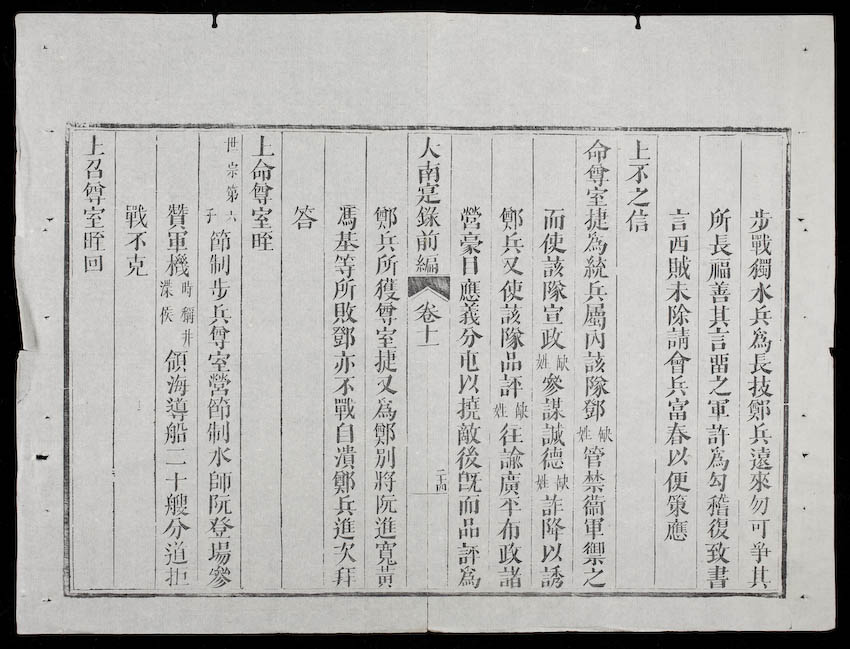 步戰獨水兵爲長技鄭兵遠來勿可爭其
所長福善其言畱之軍許爲勾稽復致書
言西賊未除請會兵富春以便策應
上不之信
命尊室捷爲統兵屬內該隊鄧缺姓管禁衞軍禦之
而使該隊宣政缺姓參謀誠德缺姓詐降以誘
鄭兵又使該隊品評缺姓往諭廣平布政諸
營豪目應義分屯以撓敵後旣而品評爲
大南寔錄前編 卷十一 二十四
鄭兵所獲尊室捷又爲鄭別將阮進寬黃
馮基等所敗鄧亦不戰自潰鄭兵進次拜
答
上命尊室晊
世宗第六子節制步兵尊室營節制水師阮登場參
贊軍機時稱井渫侯領海導船二十艘分道拒
戰不克
上召尊室晊回